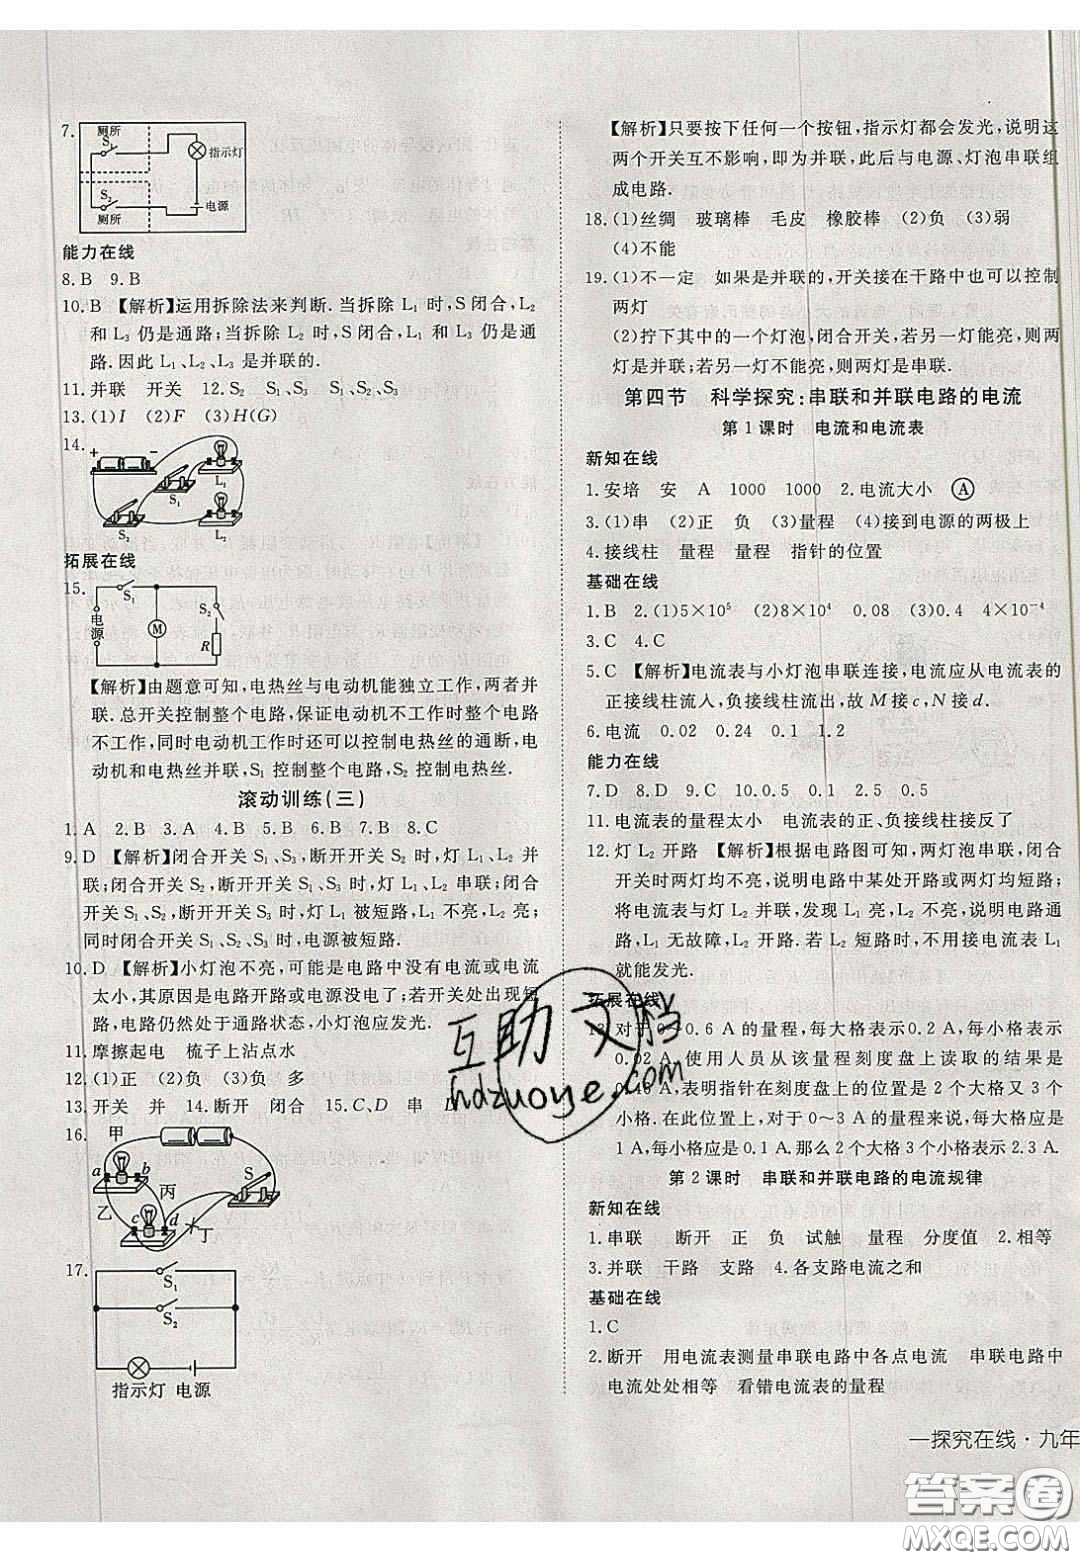 7.
厕所
S₁
指示灯
S₂
电源
厕所
能力在线
8.B 9.B
10.B 【解析】运用拆除法来判断.当拆除 L₁ 时,S闭合,L₂
和 L₃ 仍是通路;当拆除 L₂ 时,S闭合,L₁ 和 L₃ 仍是通
路.因此 L₁、L₂、L₃ 是并联的.
11.并联 开关 12.S₂ S₁、S₃ S₁、S₂、S₃
13.(1)I (2)F (3)H(G)
14.
+ −
S₁ L₁
S₂ L₂
拓展在线
15.
S₁ S₂
电源
M
R
【解析】由题意可知,电热丝与电动机能独立工作,两者并
联.总开关控制整个电路,保证电动机不工作时整个电路
不工作,同时电动机工作时还可以控制电热丝的通断,电
动机和电热丝并联,S₁ 控制整个电路,S₂ 控制电热丝.
滚动训练(三)
1.A 2.B 3.A 4.B 5.B 6.B 7.B 8.C
9.D 【解析】闭合开关 S₁、S₃,断开开关 S₂ 时,灯 L₁、L₂ 并
联;闭合开关 S₂,断开开关 S₁、S₃ 时,灯 L₁、L₂ 串联;闭合
开关 S₁、S₂,断开开关 S₃ 时,灯 L₁ 被短路,L₁ 不亮,L₂ 亮;
同时闭合开关 S₁、S₂、S₃ 时,电源被短路.
10.D 【解析】小灯泡不亮,可能是电路中没有电流或电流
太小,其原因是电路开路或电源没电了;若开关处出现短
路,电路仍然处于通路状态,小灯泡应发光.
11.摩擦起电 梳子上沾点水
12.(1)正 (2)负 (3)负 多
13.开关 并 14.断开 闭合 15.C、D 串
16.
甲
a b S
丙
乙
c d
丁
17.
S₁
S₂
指示灯 电源
【解析】只要按下任何一个按钮,指示灯都会发光,说明这
两个开关互不影响,即为并联,此后与电源、灯泡串联组
成电路.
18.(1)丝绸 玻璃棒 毛皮 橡胶棒 (2)负 (3)弱
(4)不能
19.(1)不一定 如果是并联的,开关接在干路中也可以控制
两灯
(2)拧下其中的一个灯泡,闭合开关,若另一灯能亮,则两
灯是并联;若另一灯不能亮,则两灯是串联.
第四节 科学探究:串联和并联电路的电流
第 1 课时 电流和电流表
新知在线
1.安培 安 A 1000 1000 2.电流大小 Ⓐ
3.(1)串 (2)正 负 (3)量程 (4)接到电源的两极上
4.接线柱 量程 量程 指针的位置
基础在线
1.B 2.(1)5×10⁵ (2)8×10⁴ 0.08 (3)0.4 4×10⁻⁴
3.C 4.C
5.C 【解析】电流表与小灯泡串联连接,电流应从电流表的
正接线柱流人,负接线柱流出,故 M 接 c,N 接 d.
6.电流 0.02 0.24 0.1 1.2
能力在线
7.D 8.D 9.C 10.0.5 0.1 2.5 0.5
11.电流表的量程太小 电流表的正、负接线柱接反了
12.灯 L₂ 开路 【解析】根据电路图可知,两灯泡串联,闭合
开关时两灯均不亮,说明电路中某处开路或两灯均短路;
将电流表与灯 L₂ 并联,发现 L₁ 亮,L₂ 不亮,说明电路通
路,L₁ 无故障,L₂ 开路.若 L₂ 短路时,不用接电流表 L₁
就能发光.
拓展在线
13.对于 0～0.6 A 的量程,每大格表示0.2 A,每小格表示
0.02 A,使用人员从该量程刻度盘上读取的结果是
0.46 A,表明指针在刻度盘上的位置是 2 个大格又 3 个
小格.在此位置上,对于 0～3 A 的量程来说,每大格应是
1 A,每小格应是 0.1 A.那么 2 个大格 3 个小格表示 2.3 A.
第 2 课时 串联和并联电路的电流规律
新知在线
1.串联 断开 正 负 试触 量程 分度值 2.相等
3.并联 干路 支路 4.各支路电流之和
基础在线
1.C
2.断开 用电流表测量串联电路中各点电流 串联电路中
电流处处相等 看错电流表的量程
一探究在线·九年
互助文档
hdzuoye.com
答案圈
MXQE.COM